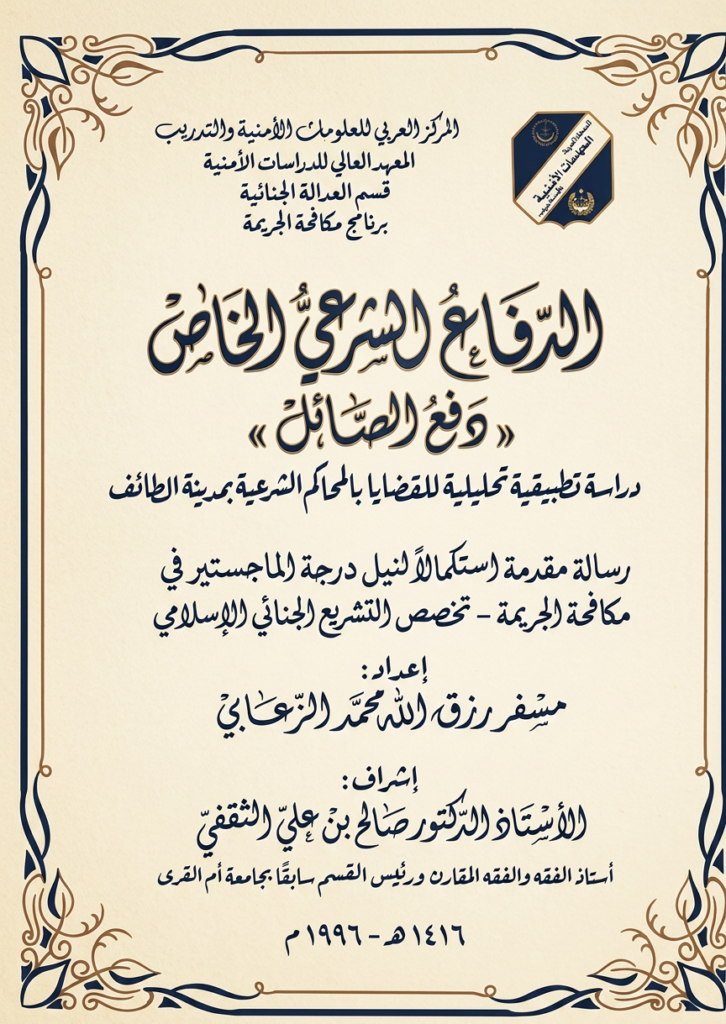 المركز العربي للعلومات الأمنية والتدريب
المعهد العالي للدراسات الأمنية
قسم العدالة الجنائية
برنامج مكافحة الجريمة
الدِّفَاعُ الشرعيُّ الخَاصّ
« دَفعُ الصَّائل »
دراسة تطبيقية تحليلية للقضايا بالمحاكم الشرعية بمدينة الطائف
رسالة مقدمة استكمالاً لنيل درجة الماجستير في
مكافحة الجريمة – تخصص التشريع الجنائي الإسلامي
إعداد:
مسفر رزق الله محمَّد الزّعَابي
إشراف:
الأسْتَاذ الدّكتور صَالح بن عليّ الثقفيّ
أستاذ الفقه والفقه المقارن ورئيس القسم سابقًا بجامعة أم القرى
١٤١٦ هـ – ١٩٩٦ م